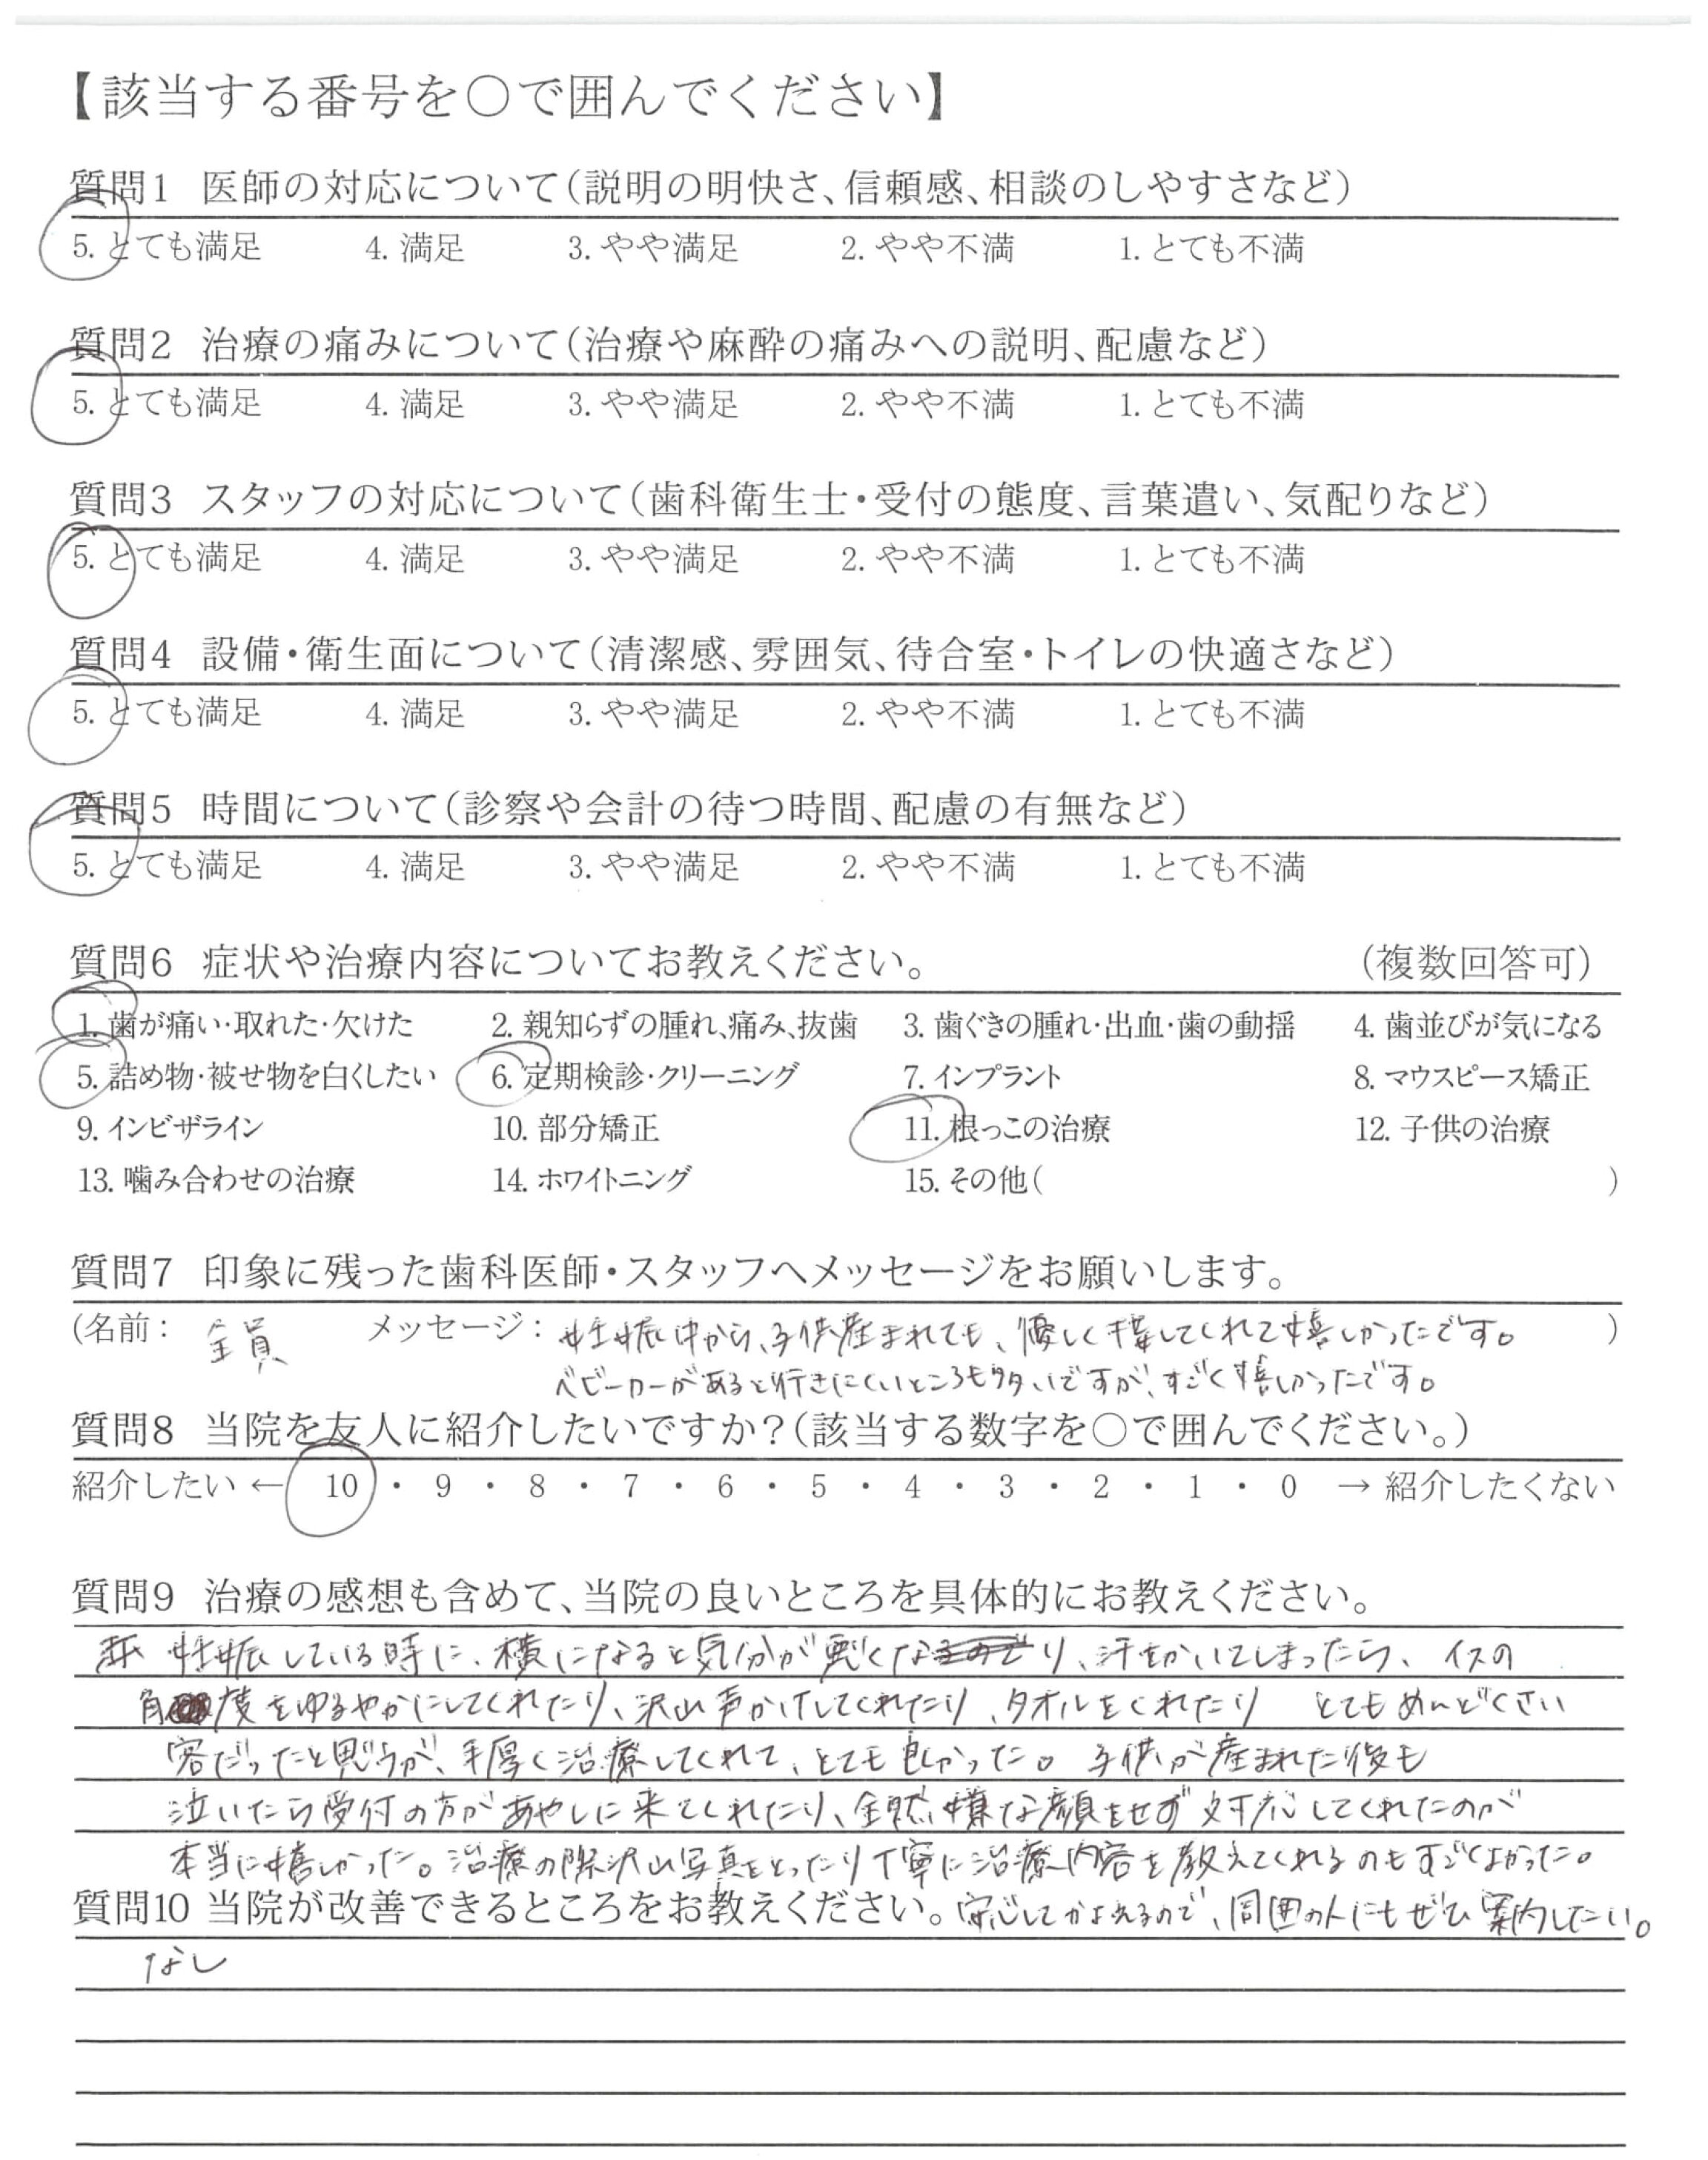 【該当する番号を○で囲んでください】
質問1 医師の対応について(説明の明快さ、信頼感、相談のしやすさなど)
5. とても満足 4. 満足 3. やや満足 2. やや不満 1. とても不満
質問2 治療の痛みについて(治療や麻酔の痛みへの説明、配慮など)
5. とても満足 4. 満足 3. やや満足 2. やや不満 1. とても不満
質問3 スタッフの対応について(歯科衛生士・受付の態度、言葉遣い、気配りなど)
5. とても満足 4. 満足 3. やや満足 2. やや不満 1. とても不満
質問4 設備・衛生面について(清潔感、雰囲気、待合室・トイレの快適さなど)
5. とても満足 4. 満足 3. やや満足 2. やや不満 1. とても不満
質問5 時間について(診察や会計の待つ時間、配慮の有無など)
5. とても満足 4. 満足 3. やや満足 2. やや不満 1. とても不満
質問6 症状や治療内容についてお教えください。 (複数回答可)
1. 歯が痛い・取れた・欠けた 2. 親知らずの腫れ、痛み、抜歯 3. 歯ぐきの腫れ・出血・歯の動揺 4. 歯並びが気になる
5. 詰め物・被せ物を白くしたい 6. 定期検診・クリーニング 7. インプラント 8. マウスピース矯正
9. インビザライン 10. 部分矯正 11. 根っこの治療 12. 子供の治療
13. 噛み合わせの治療 14. ホワイトニング 15. その他( )
質問7 印象に残った歯科医師・スタッフへメッセージをお願いします。
(名前: 全員 メッセージ: 妊娠中から、子供産まれても、優しく接してくれて嬉しかったです。 )
ベビーカーがあると行きにくいところも多いですが、すごく嬉しかったです。
質問8 当院を友人に紹介したいですか?(該当する数字を○で囲んでください。)
紹介したい ← 10 ・ 9 ・ 8 ・ 7 ・ 6 ・ 5 ・ 4 ・ 3 ・ 2 ・ 1 ・ 0 → 紹介したくない
質問9 治療の感想も含めて、当院の良いところを具体的にお教えください。
私 妊娠している時に、横になると気分が悪くなり、汗をかいてしまったら、イスの
角度をゆるやかにしてくれたり、沢山声かけしてくれたり、タオルをくれたり とてもめんどくさい
客だったと思うが、手厚く治療してくれて、とても良かった。子供が産まれた後も
泣いたら受付の方があやしに来てくれたり、全然嫌な顔をせず対応してくれたのが
本当に嬉しかった。治療の際沢山写真をとったり丁寧に治療内容を教えてくれるのもすごくよかった。
質問10 当院が改善できるところをお教えください。安心してかよえるので、周囲の人にもぜひ案内したい。
なし